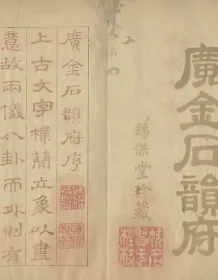 廣金石韻府
保堂珍藏
廣金石韻府序
上古文字樸簡立象以盡
意故兩儀八卦而外則有